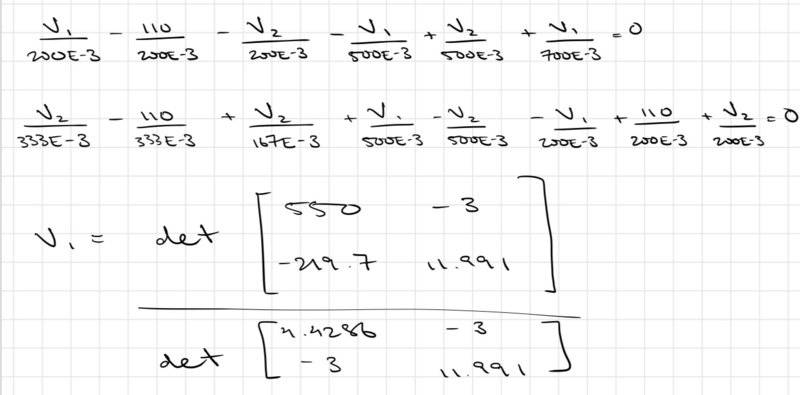 V₁/200E-3 - 110/200E-3 - V₂/200E-3 - V₁/500E-3 + V₂/500E-3 + V₁/700E-3 = 0
V₂/333E-3 - 110/333E-3 + V₂/167E-3 + V₁/500E-3 - V₂/500E-3 - V₁/200E-3 + 110/200E-3 + V₂/200E-3 = 0
V₁ = det [550 -3
-219.7 11.991]
det [4.4286 -3
-3 11.991]